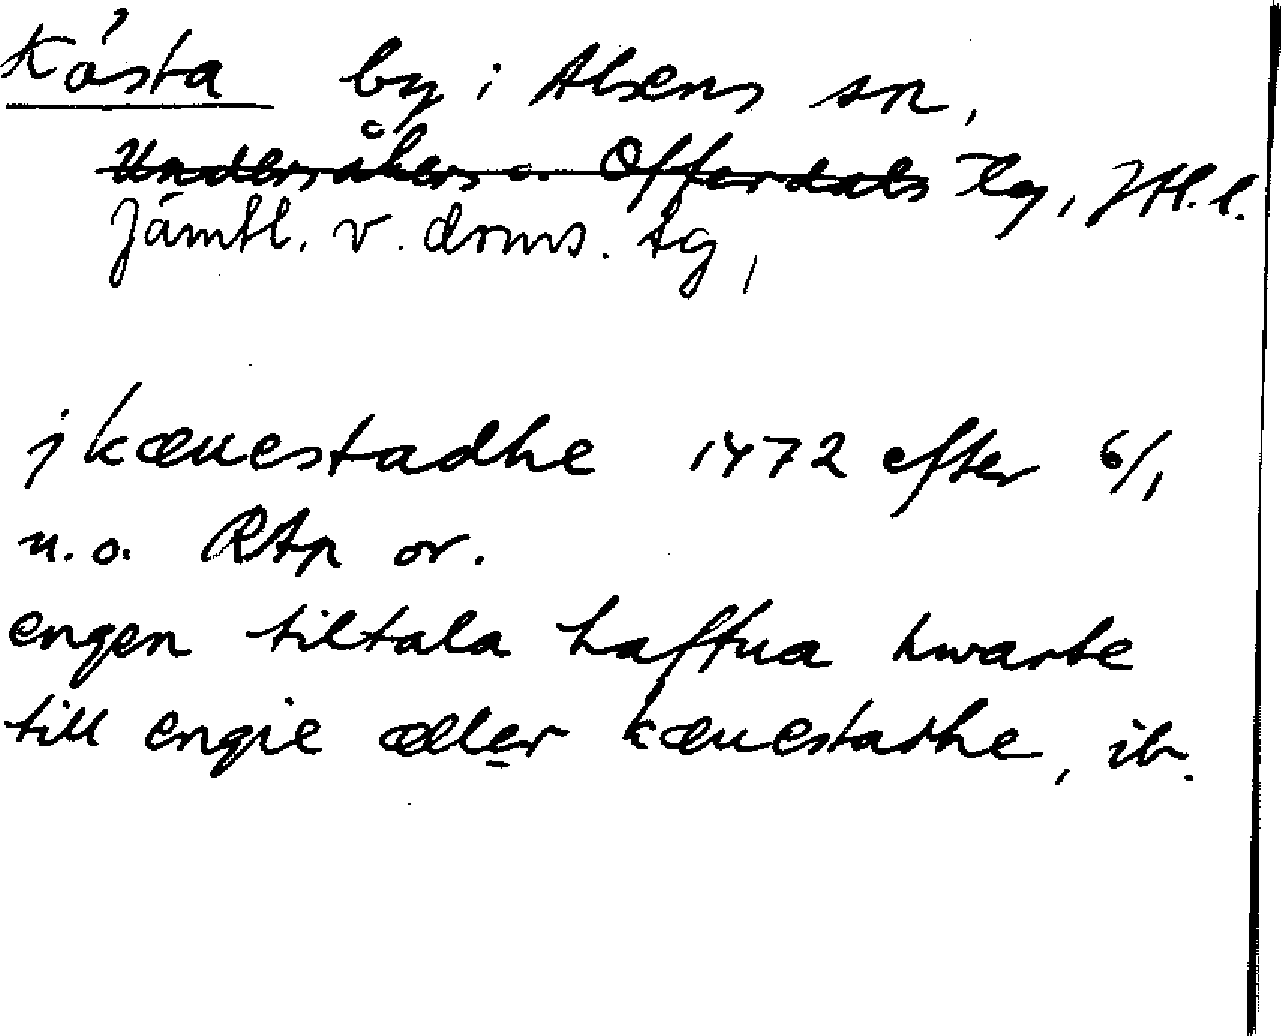 Kösta by i Alsens sn,
Undersåkers o. Offerdals tg, Jtl.l.
Jämtl. v. doms. tg,
j kæuestadhe 1472 efter 6/1
n.o. RAp or.
engen tiltala haffua hwarte
till engie æller kæuestadhe, ib.